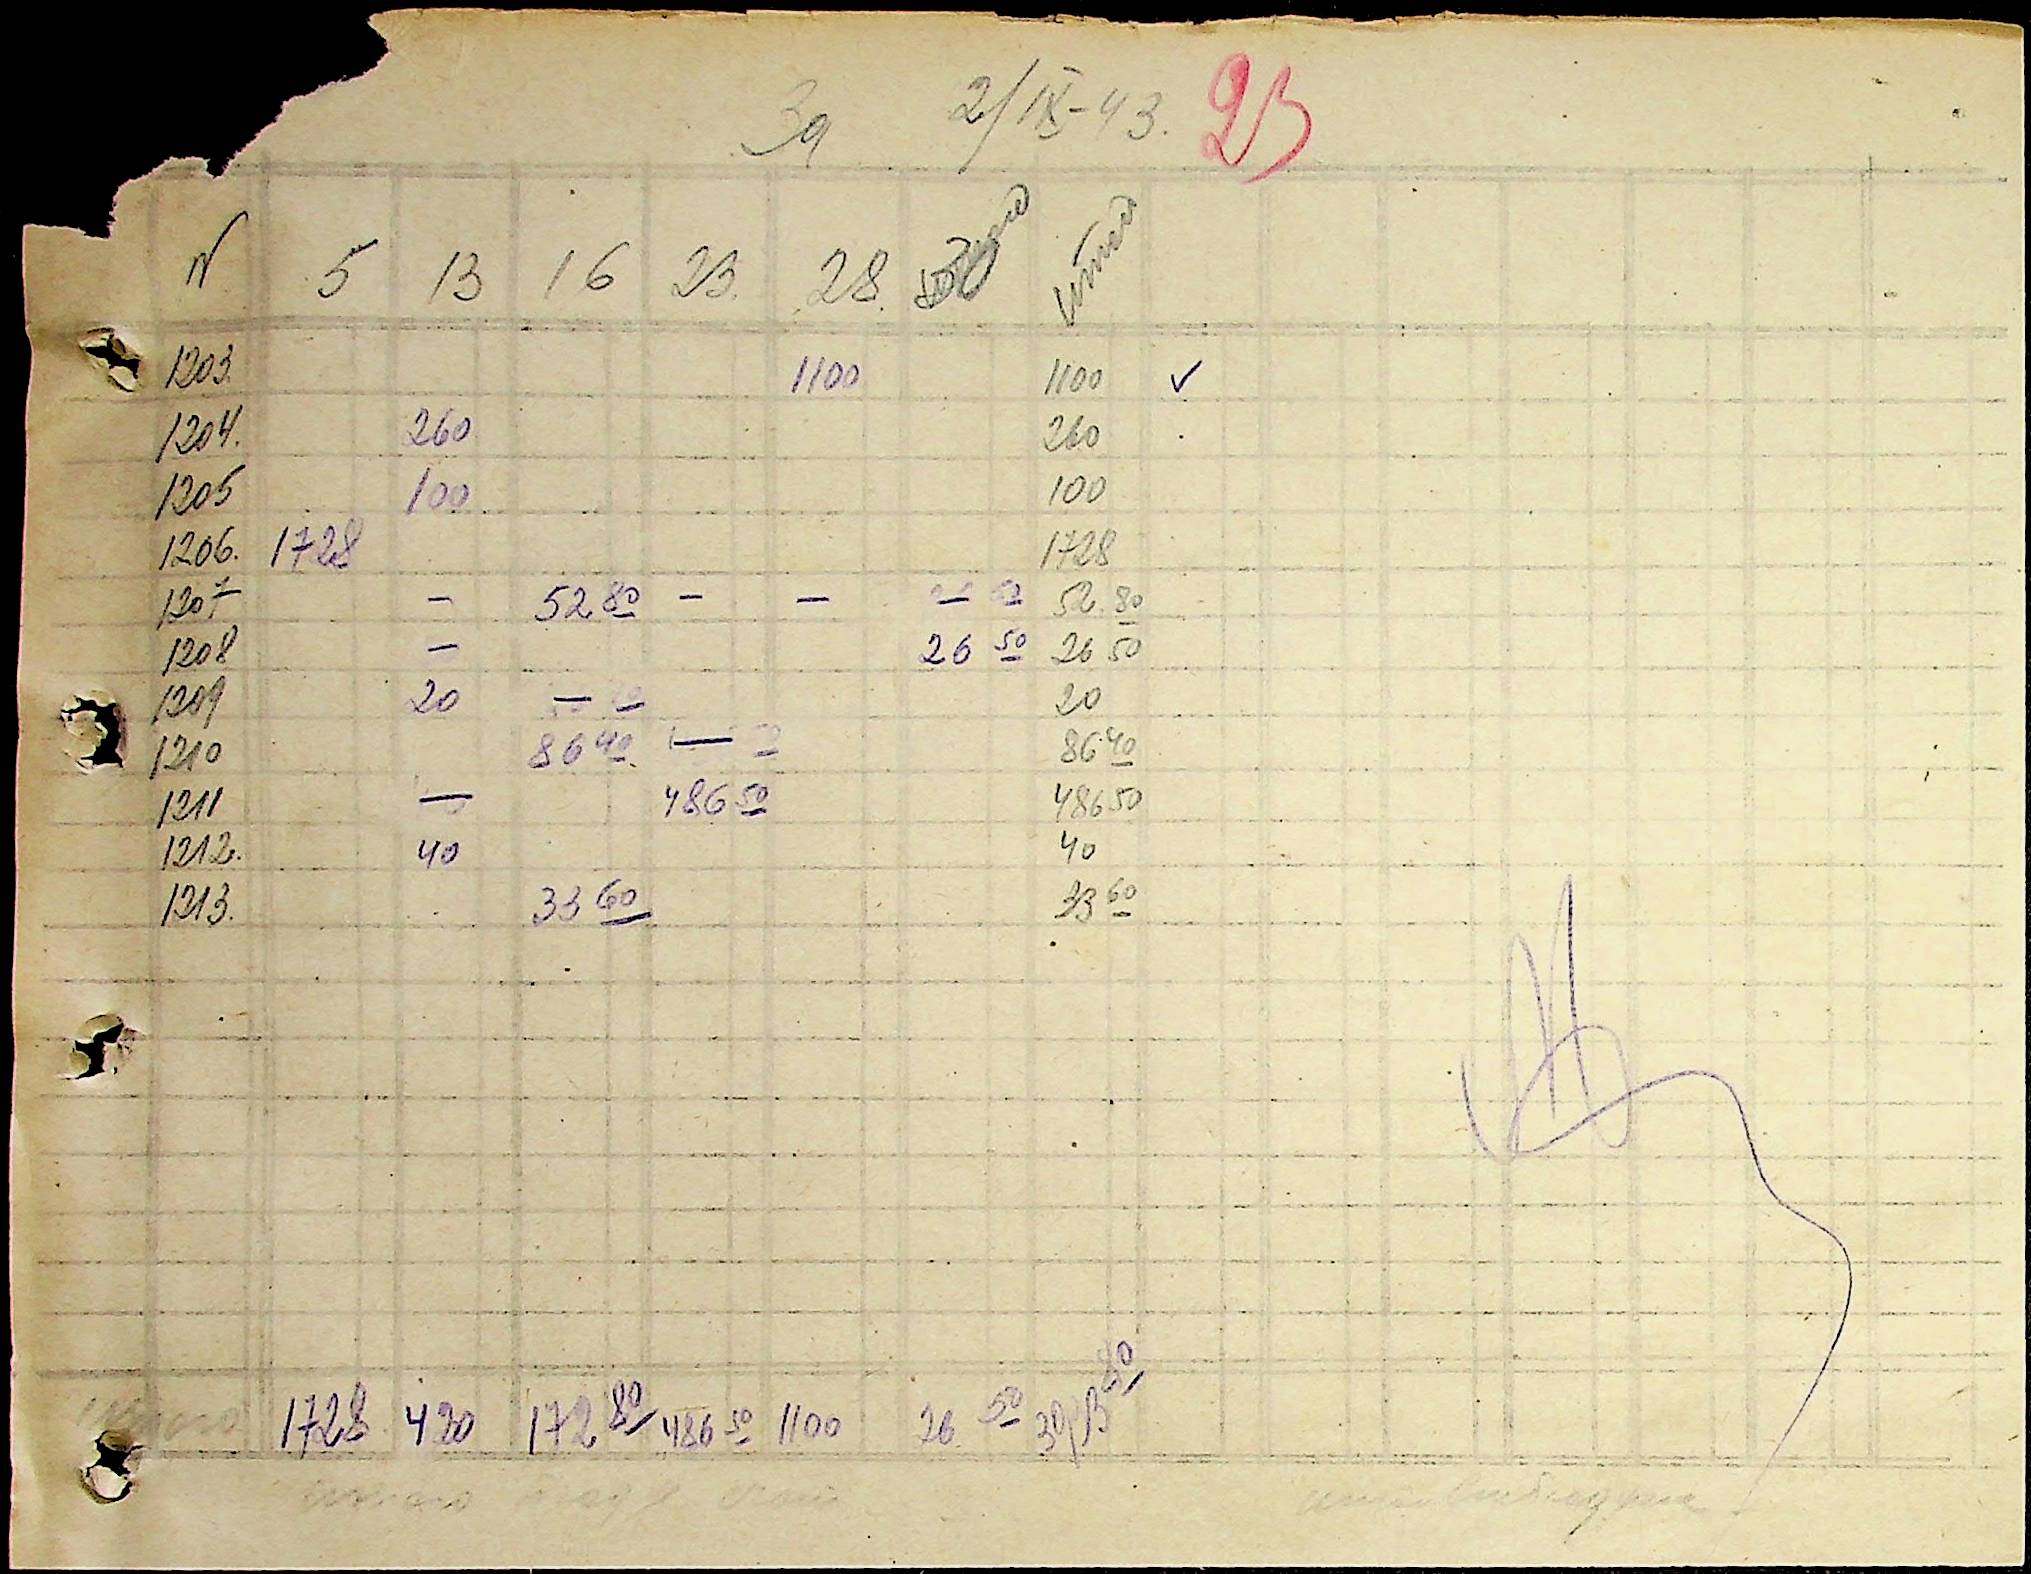 За 2/IX-43. 23
N 5 13 16 23. 28. итого
1203. 1100 1100 ✓
1204. 260 260
1205 100 100
1206. 1728 1728
1207 — 52 80 — — — 52.80
1208 — 26 50 26 50
1209 20 — 20
1210 86 40 — 86 40
1211 — 486 50 486 50
1212. 40 40
1213. 33 60 33 60
1728 420 172 80 486 50 1100 26 50 80